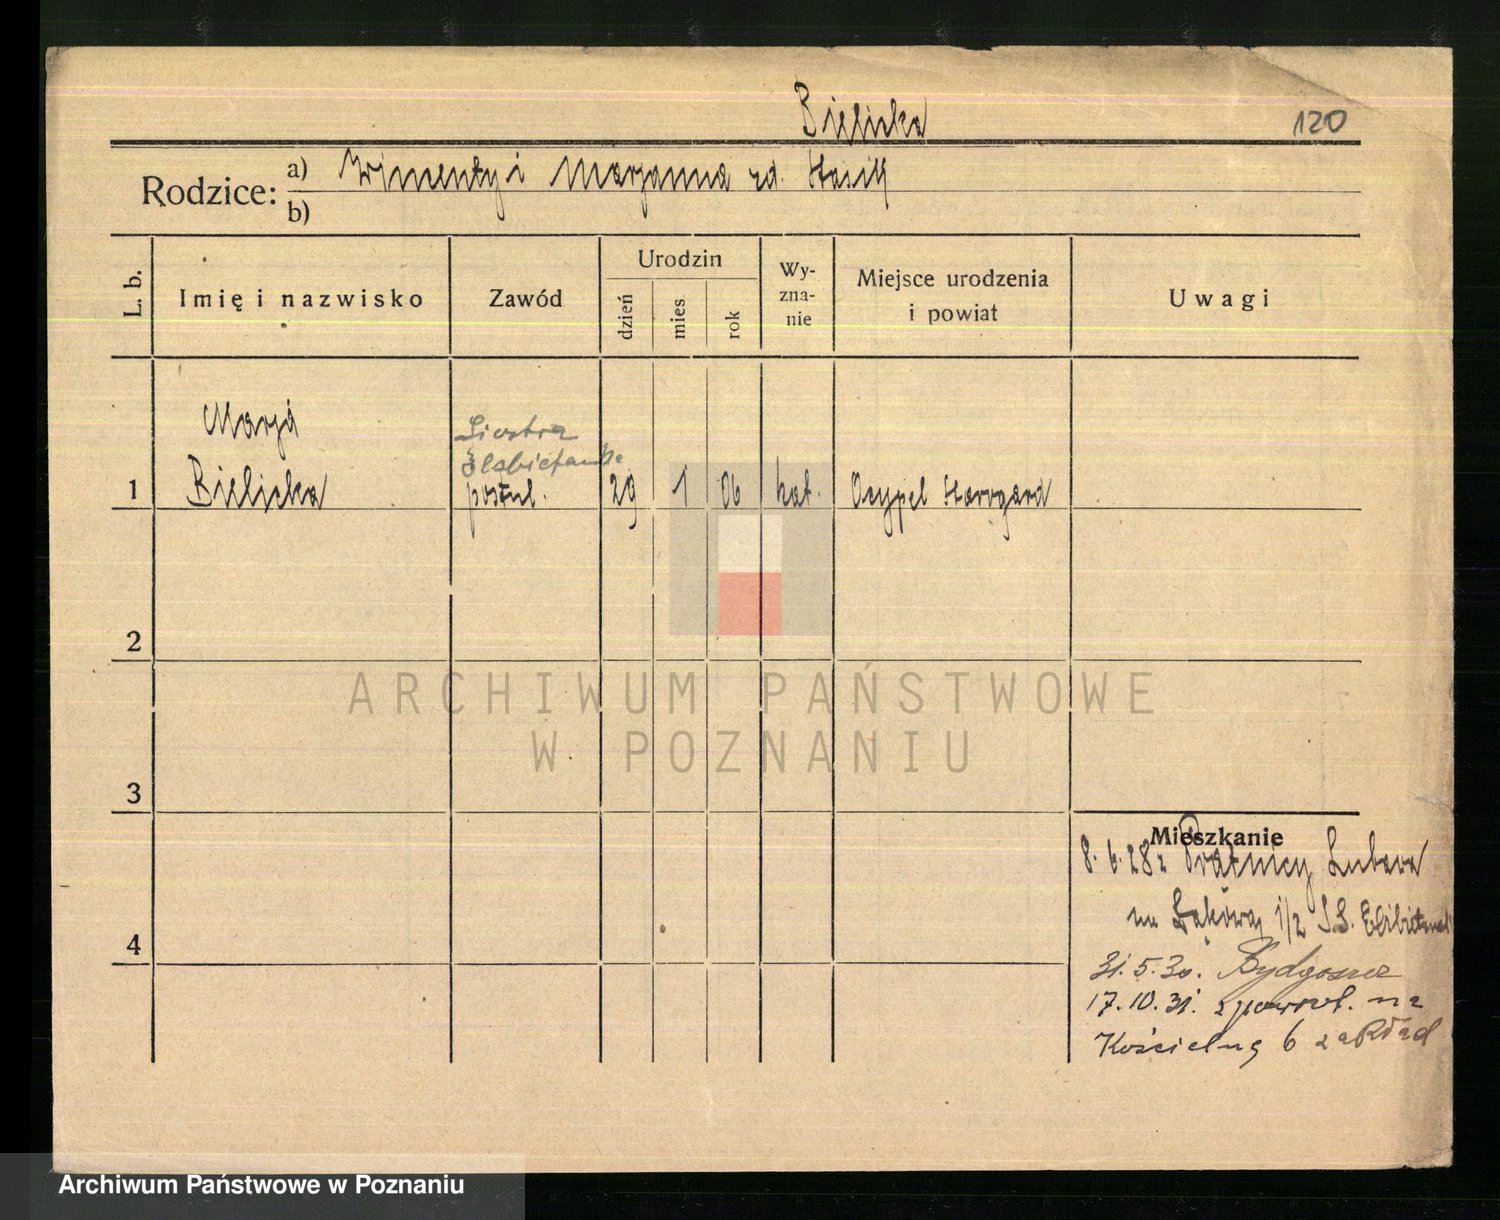 Bielicka
120
Rodzice:
a) Wincenty i Marjanna zd. Stasik
b)
L. b.
Imię i nazwisko
Zawód
Urodzin
dzień
mies
rok
Wy-
zna-
nie
Miejsce urodzenia
i powiat
Uwagi
Marja
Siostra
Elżbietanka
1 Bielicka postul. 29 1 06 kat. Ocypel Starogard
2
3
4
Mieszkanie
8. 6. 28 z Pratnicy Lubawa
na Łąkową 1/2 S.S. Elżbietanek
31. 5. 30. Bydgoszcz
17. 10. 31. z powrot. na
Kościelną 6 zakład
ARCHIWUM PAŃSTWOWE
W POZNANIU
Archiwum Państwowe w Poznaniu